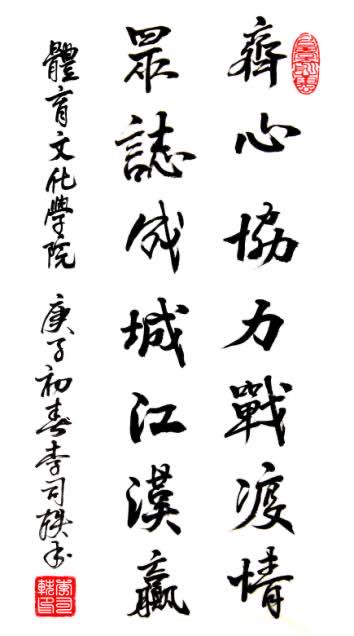 齊心協力戰疫情
眾誌成城江漢贏
體育文化學院 庚子初春李司軼書